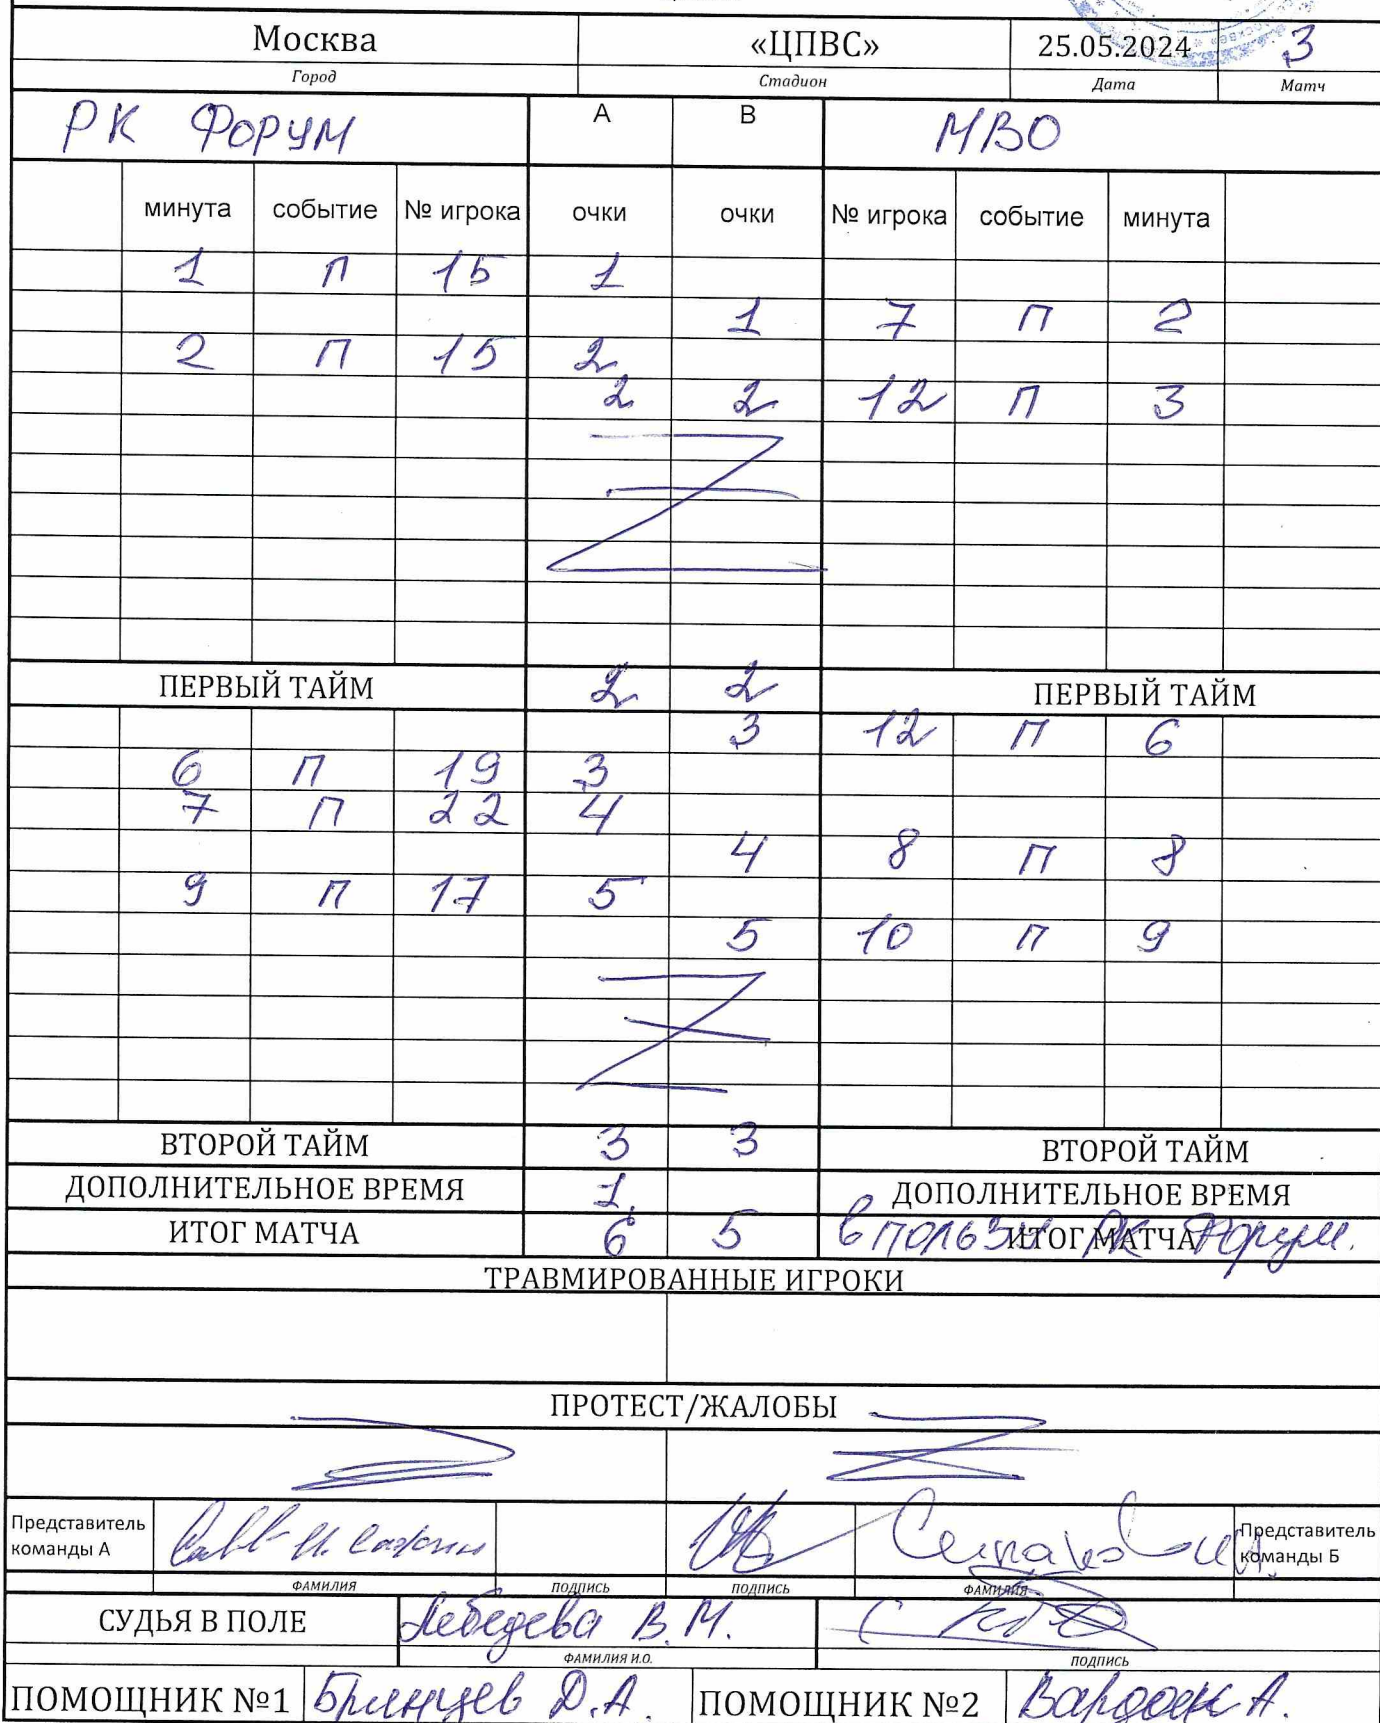 Москва «ЦПВС» 25.05.2024 3
Город Стадион Дата Матч
РК ФОРУМ А В МВО
минута событие № игрока очки очки № игрока событие минута
1 П 15 1
1 7 П 2
2 П 15 2
2 2 12 П 3
ПЕРВЫЙ ТАЙМ 2 2 ПЕРВЫЙ ТАЙМ
3 12 П 6
6 П 19 3
7 П 22 4
4 8 П 8
9 П 17 5
5 10 П 9
ВТОРОЙ ТАЙМ 3 3 ВТОРОЙ ТАЙМ
ДОПОЛНИТЕЛЬНОЕ ВРЕМЯ 1 ДОПОЛНИТЕЛЬНОЕ ВРЕМЯ
ИТОГ МАТЧА 6 5 ИТОГ МАТЧА в пользу РК Форум.
ТРАВМИРОВАННЫЕ ИГРОКИ
ПРОТЕСТ/ЖАЛОБЫ
Представитель команды А Представитель команды Б
ФАМИЛИЯ ПОДПИСЬ ПОДПИСЬ ФАМИЛИЯ
СУДЬЯ В ПОЛЕ Лебедева В.М.
ФАМИЛИЯ И.О. ПОДПИСЬ
ПОМОЩНИК №1 Д.А. ПОМОЩНИК №2 А.